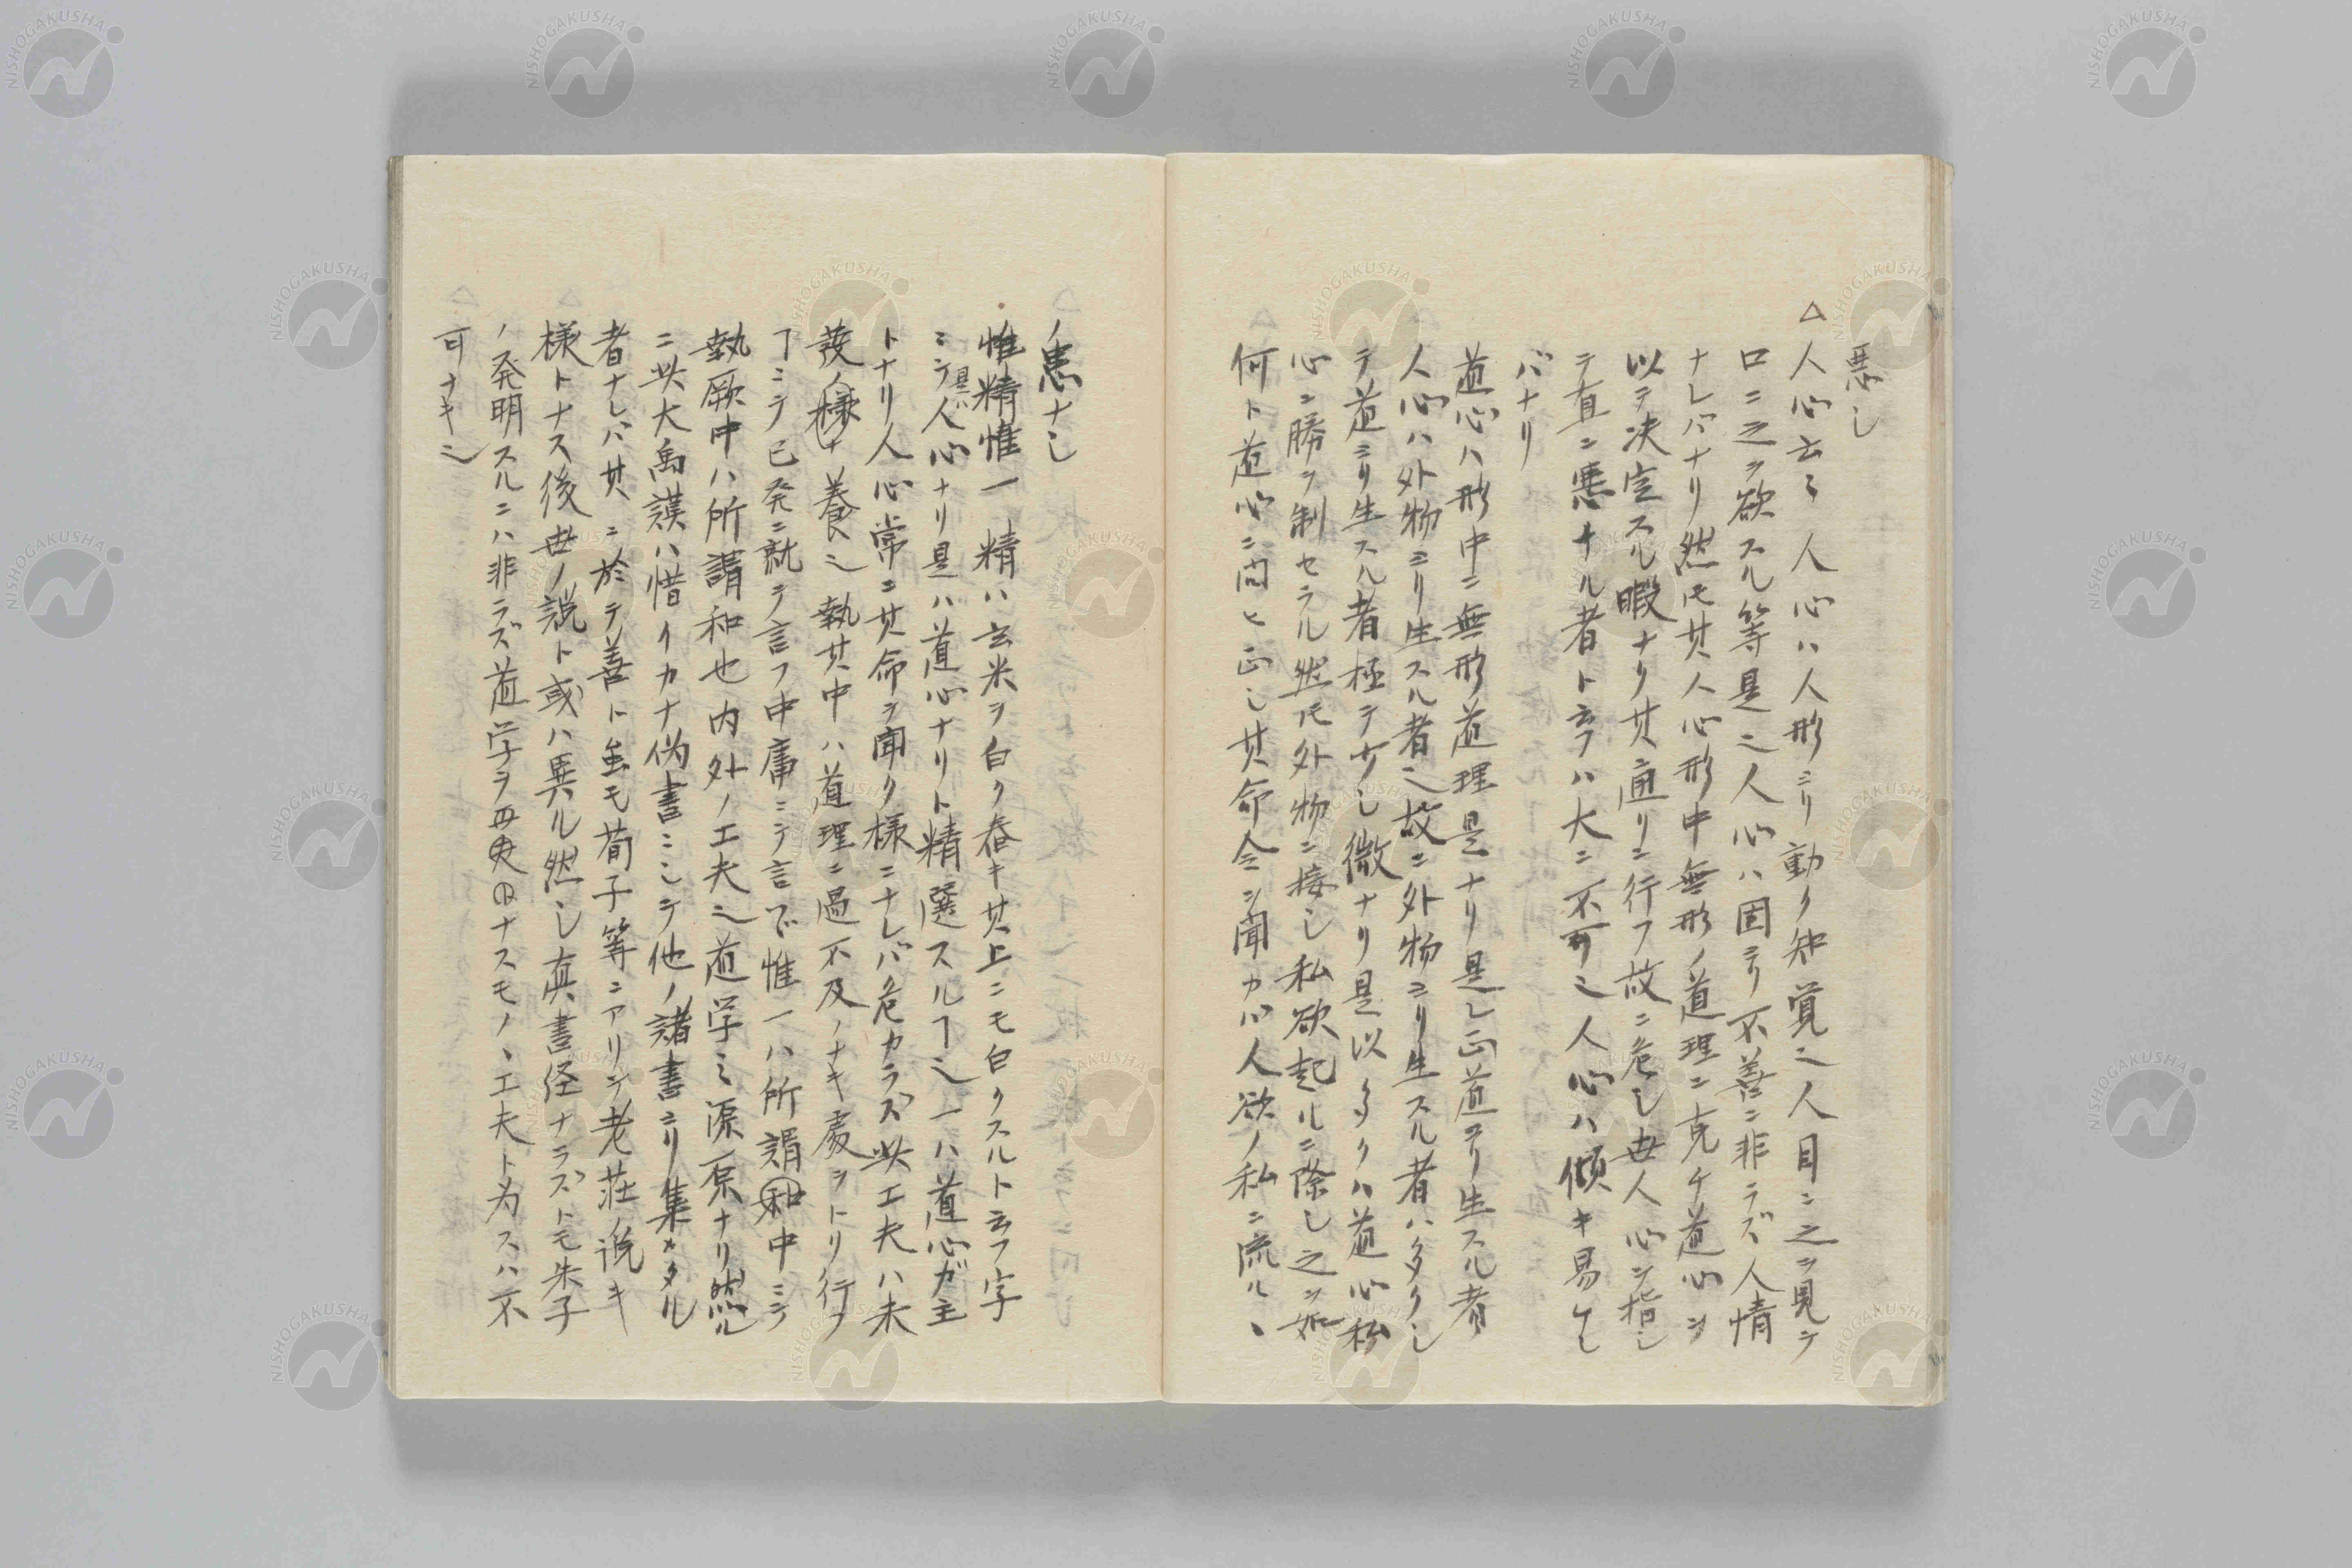 悪シ
△人心云々 人心ハ人形ヨリ動ク知覚也人目ニ之ヲ見テ
口ニ之ヲ欲スル等是也人心ハ固ヨリ不善ニ非ラズ人情
ナレバナリ然圧其人心形中無形ノ道理ニ克チ道心ヲ
以テ决定スル暇ナリ其通リニ行フ故ニ危シ世人心ヲ指シ
テ直ニ悪ナル者ト云フハ大ニ不可也人心ハ傾キ易ケレ
バナリ
道心ハ形中ニ無形ノ道理是ナリ是レ正道ヨリ生スル者
人心ハ外物ヨリ生スル者也故ニ外物ヨリ生スル者ハ多クシ
テ道ヨリ生スル者極テ少シ微ナリ是以多クハ道心私
心ニ勝ヲ制セラル然圧外物ニ接シ私欲起ルニ際シ之ヲ如
何ト道心ニ問ヒ正シ其命令ヲ聞カバ人欲ノ私ニ流ルヽ
ノ患ナシ
惟精惟一 精ハ玄米ヲ白ク舂キ其上ニモ白クスルト云フ字
ニテ是ハ人心ナリ是ハ道心ナリト精選スルヿ也一ハ道心ガ主
トナリ人心常ニ其命ヲ聞ク様ニナレバ危カラズ此工夫ハ未
発ノ様ナ養也執其中ハ道理ニ過不及ノナキ處ヲトリ行フ
ヿニテ已発ニ就テ言フ中庸ニテ言ヘバ惟一ハ所謂和中ニテ
執厥中ハ所謂和也内外ノ工夫也道学ノ源原ナリ然ル
ニ此大禹謨ハ惜イカナ偽書ニシテ他ノ諸書ヨリ集メタル
者ナレバ其ニ於テ善ト虽モ荀子等ニアリシ老荘ノ説キ
様トナス後世ノ説ト或ハ異ル然シ真書経ナラズトモ朱子
ノ発明スルニハ非ラズ道学ヲナスモノヽ工夫ト為スハ不
可ナキ也